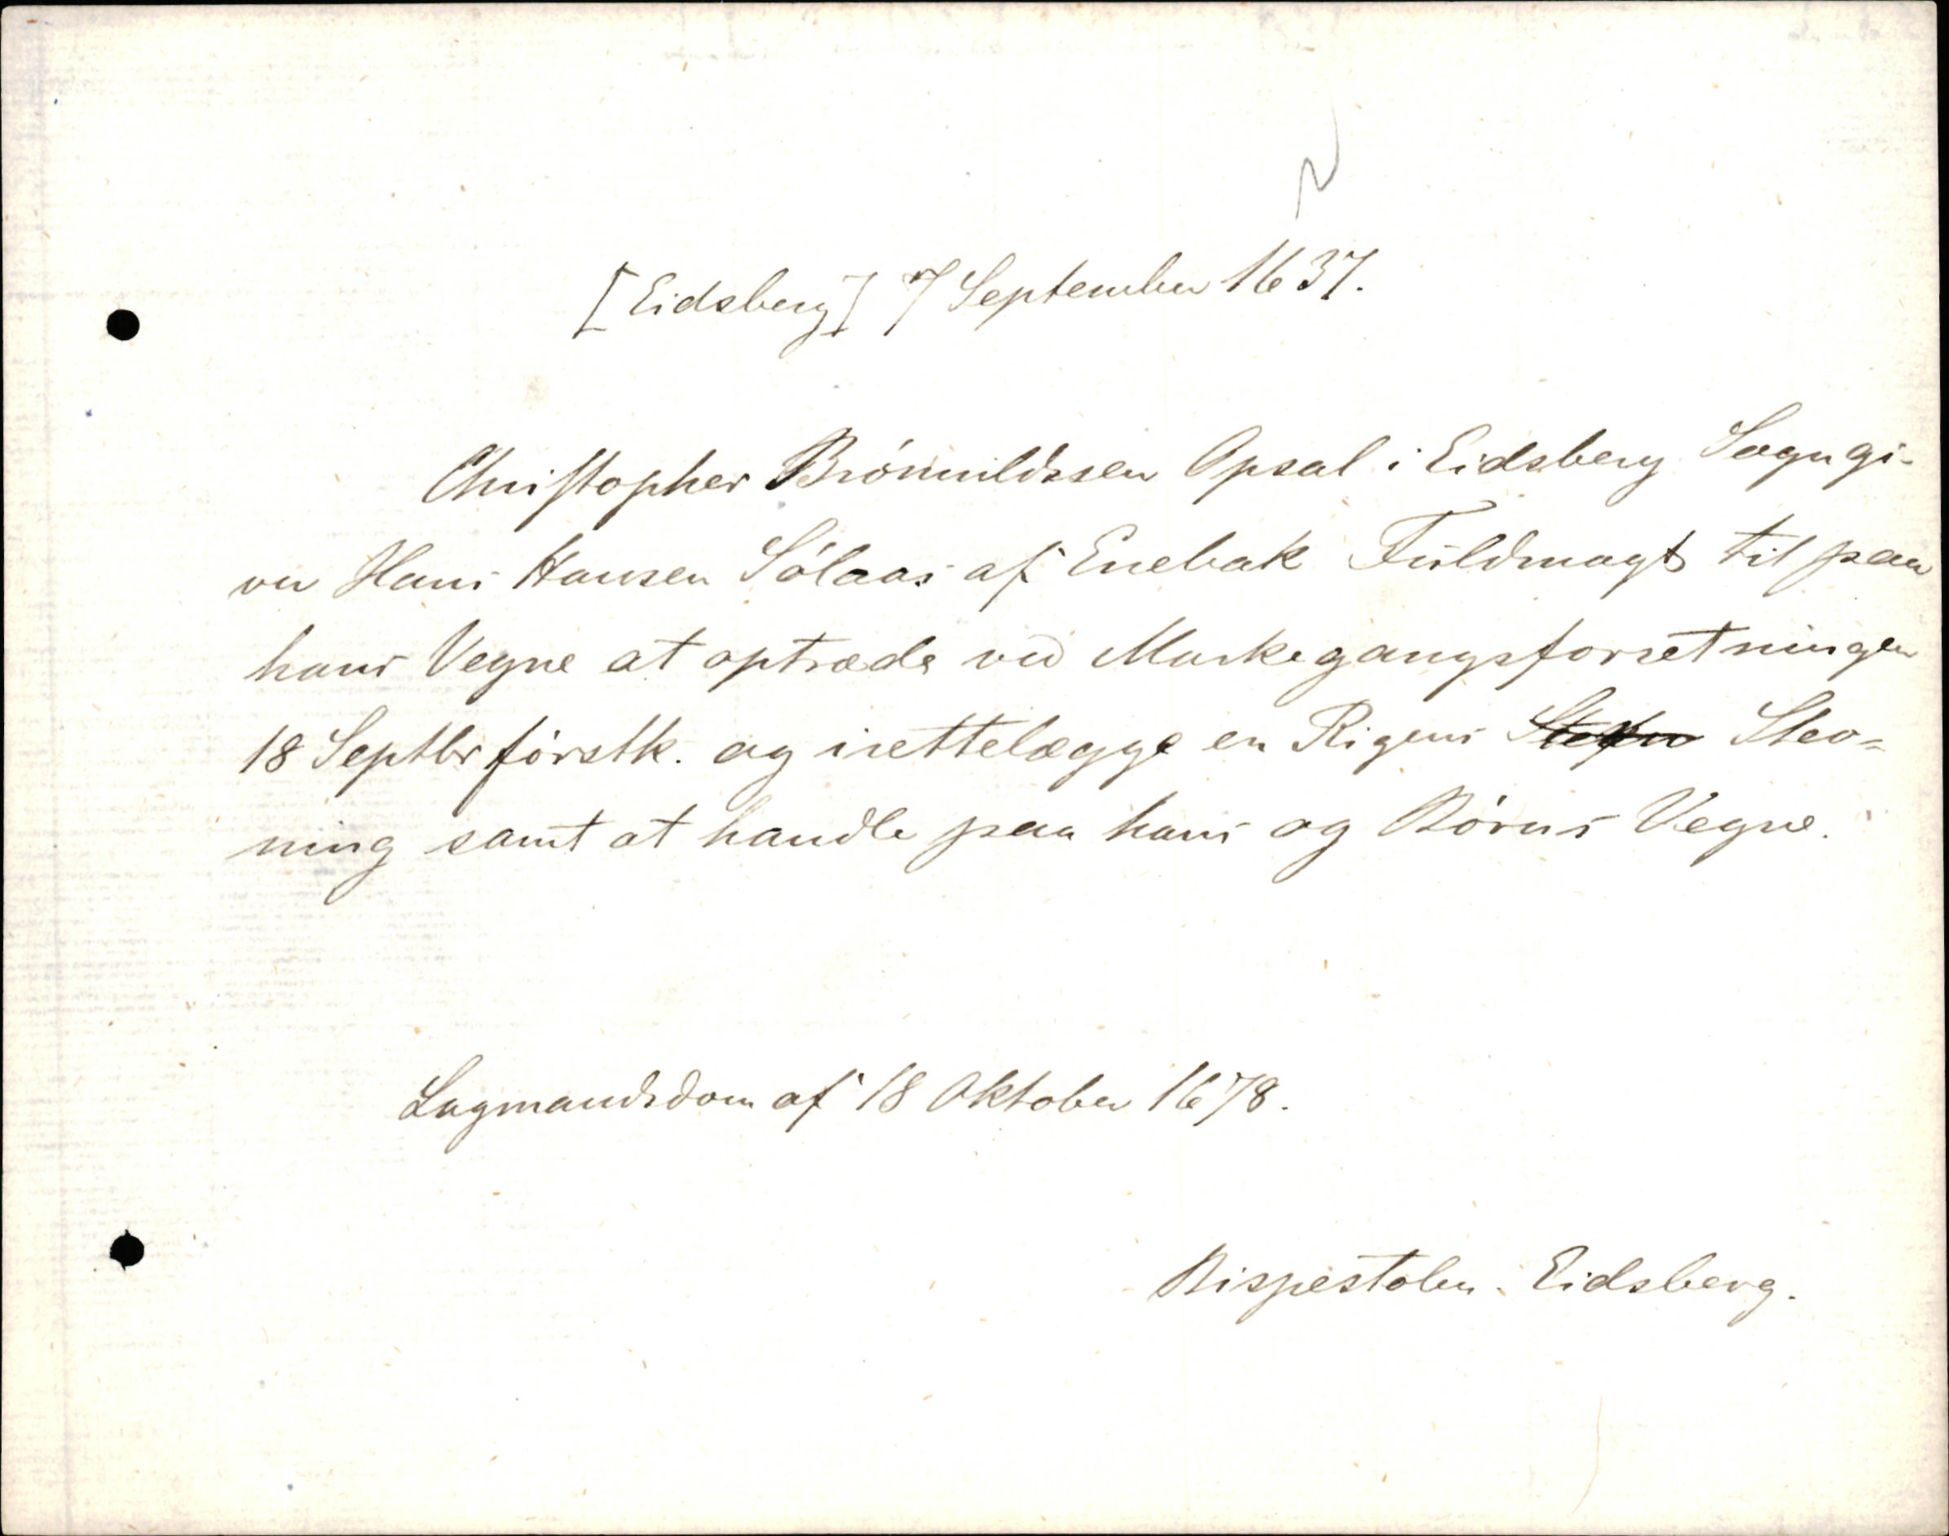 [Eidsberg] 7 September 1637.
Christopher Brömildssen Opsal i Eidsberg Sogn gi-
ver Hans Hansen Sólaas af Enebak Fuldmagt til paa
hans Vegne at optræde ved Markegangsforretningen
18 Septbr förstk. og irettelægge en Rigens Stev-
ning samt at handle paa hans og Börns Vegne.
Lagmandsdom af 18 Oktober 1678.
Bispestolen. Eidsberg.